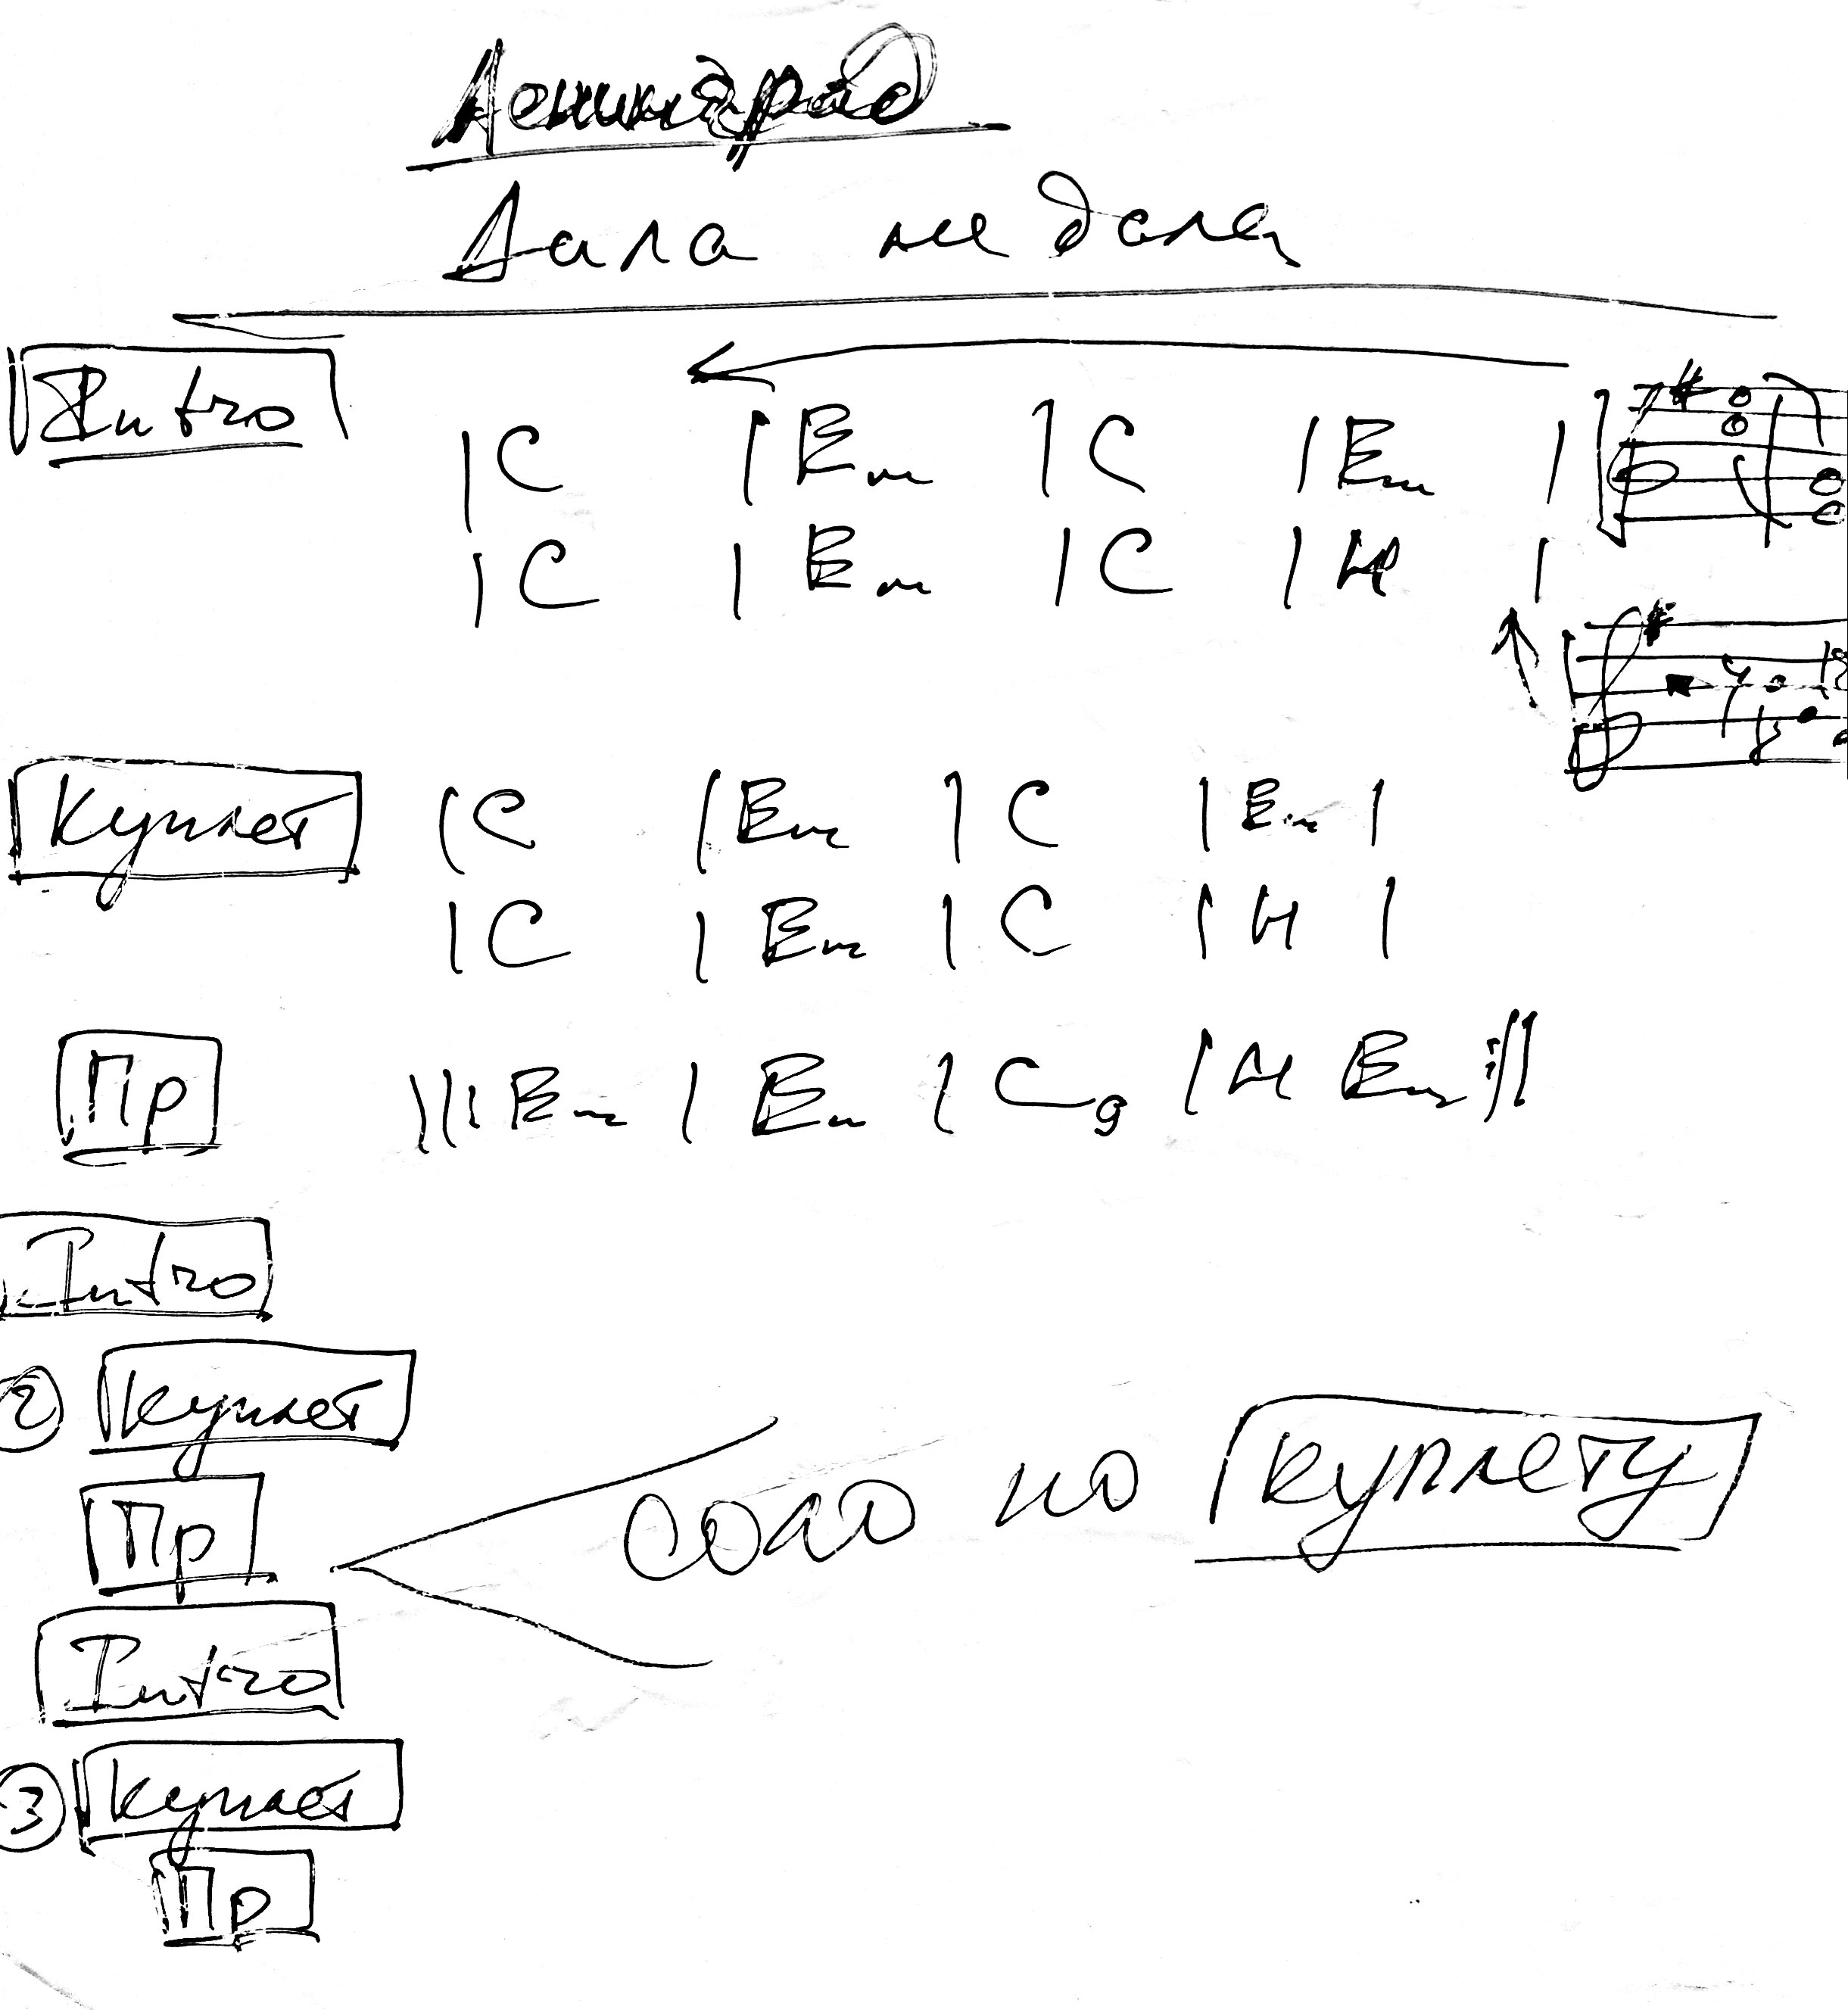 Ленинград
Дала не дала
Intro
|C |Em |C |Em |
|C |Em |C |H |
Куплет
|C |Em |C |Em |
|C |Em |C |H |
Пр
||: Em | Em | C9 | H Em :||
Intro
2 Куплет
Пр
соло по куплету
Intro
3 Куплет
Пр